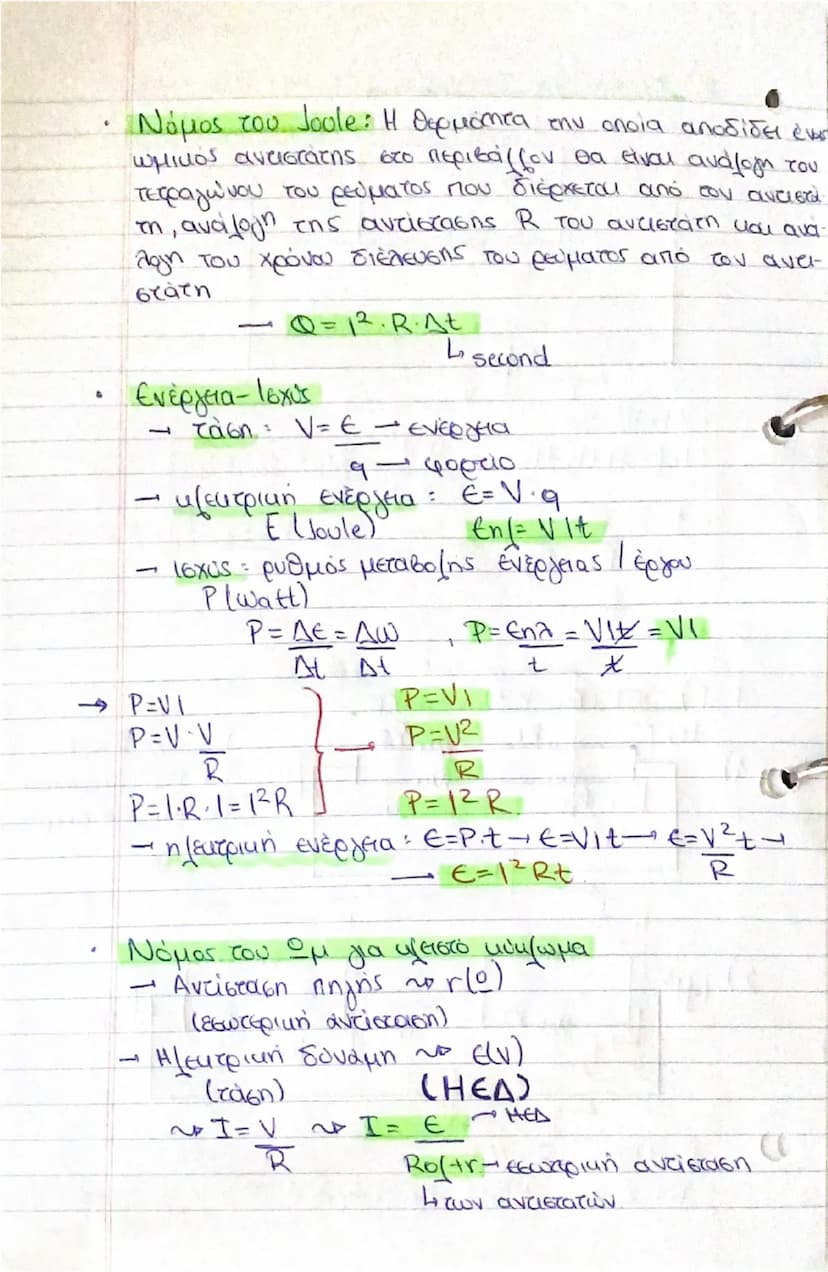 · Νόμος του Joule: Η θερμότητα την οποία αποδίδει ένας
ωμικός αντιστάτης στο περιβάλλον θα είναι ανάλογη του
τετραγώνου του ρεύματος που διέρχεται από τον αντιστά
τη, ανάλογη της αντίστασης R του αντιστάτη και ανά-
λογη του χρόνου διέλευσης του ρεύματος από τον αντι-
στάτη
→ Q = I² · R · Δt
↳ second
· Ενέργεια - Ισχύς
→ τάση: V = ε/q → ενέργεια
q → φορτίο
→ ηλεκτρική ενέργεια: ε = V · q
E (Joule) εηλ = VIt
→ Ισχύς = ρυθμός μεταβολής ενέργειας / έργου
P (watt)
P = Δε/Δt = Δω/Δt , P = εηλ/t = VIt/t = VI
→ P = VI P = VI
P = V · V/R → P = V²/R
P = I · R · I = I²R P = I²R
→ ηλεκτρική ενέργεια: ε = P.t → ε = VIt → ε = V²/R t →
→ ε = I²Rt
· Νόμος του Ωμ για κλειστό κύκλωμα
→ Αντίσταση πηγής ⤳ r(Ω)
(εσωτερική αντίσταση)
→ Ηλεκτρική δύναμη ⤳ ε(v)
(τάση) (ΗΕΔ)
⤳ I = V/R ⤳ I = ε/(Rολ + r) → ΗΕΔ
→ εσωτερική αντίσταση
↳ των αντιστατών